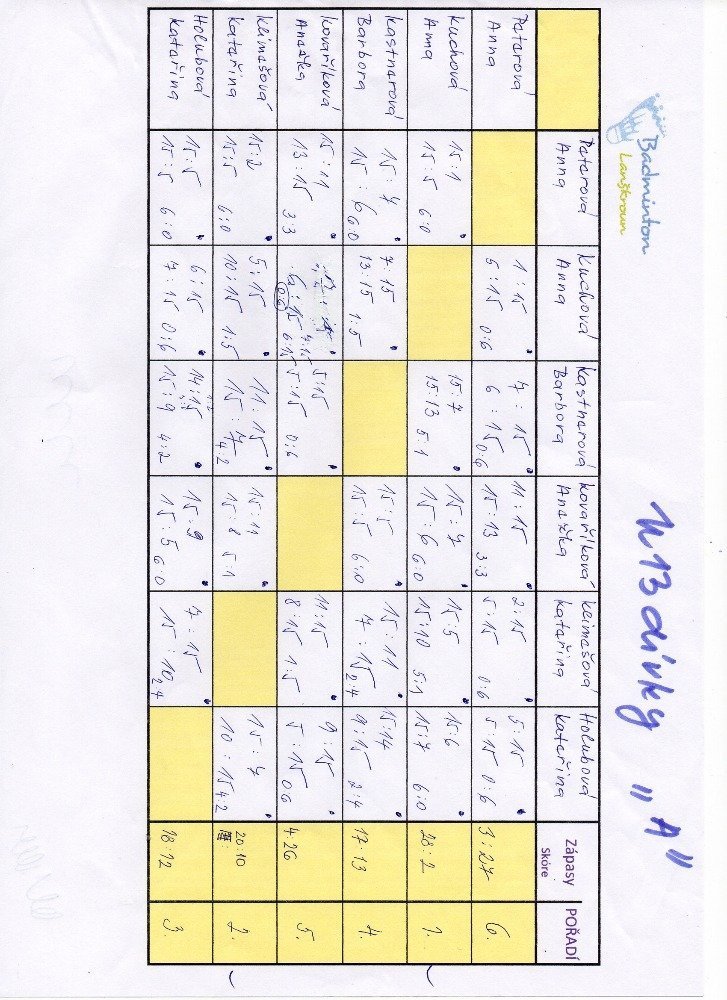 Badminton
Lanškroun
U13 dívky "A"
Peterová Anna
Kuchová Anna
Kastnerová Barbora
Kovaříková Anežka
Klimešová Kateřina
Holubová Kateřina
Zápasy skóre
POŘADÍ
Peterová Anna
1:15 5:15 0:6
7:15 6:15 0:6
11:15 15:13 3:3
2:15 5:15 0:6
5:15 5:15 0:6
3:27
6.
Kuchová Anna
15:1 15:5 6:0
15:7 15:13 5:1
15:7 15:6 6:0
15:5 15:10 5:1
15:6 15:7 6:0
28:2
1.
Kastnerová Barbora
15:7 15:6 6:0
7:15 13:15 1:5
15:5 15:5 6:0
15:11 7:15 2:4
15:14 9:15 2:4
17:13
4.
Kovaříková Anežka
15:11 13:15 3:3
7:15 6:15 0:6
5:15 5:15 0:6
11:15 8:15 1:5
9:15 5:15 0:6
4:26
5.
Klimešová Kateřina
15:2 15:5 6:0
5:15 10:15 1:5
11:15 15:7 4:2
15:11 15:8 5:1
15:7 10:15 4:2
20:10
2.
Holubová Kateřina
15:5 15:5 6:0
6:15 7:15 0:6
14:15 15:9 4:2
15:9 15:5 6:0
7:15 15:10 2:4
18:12
3.